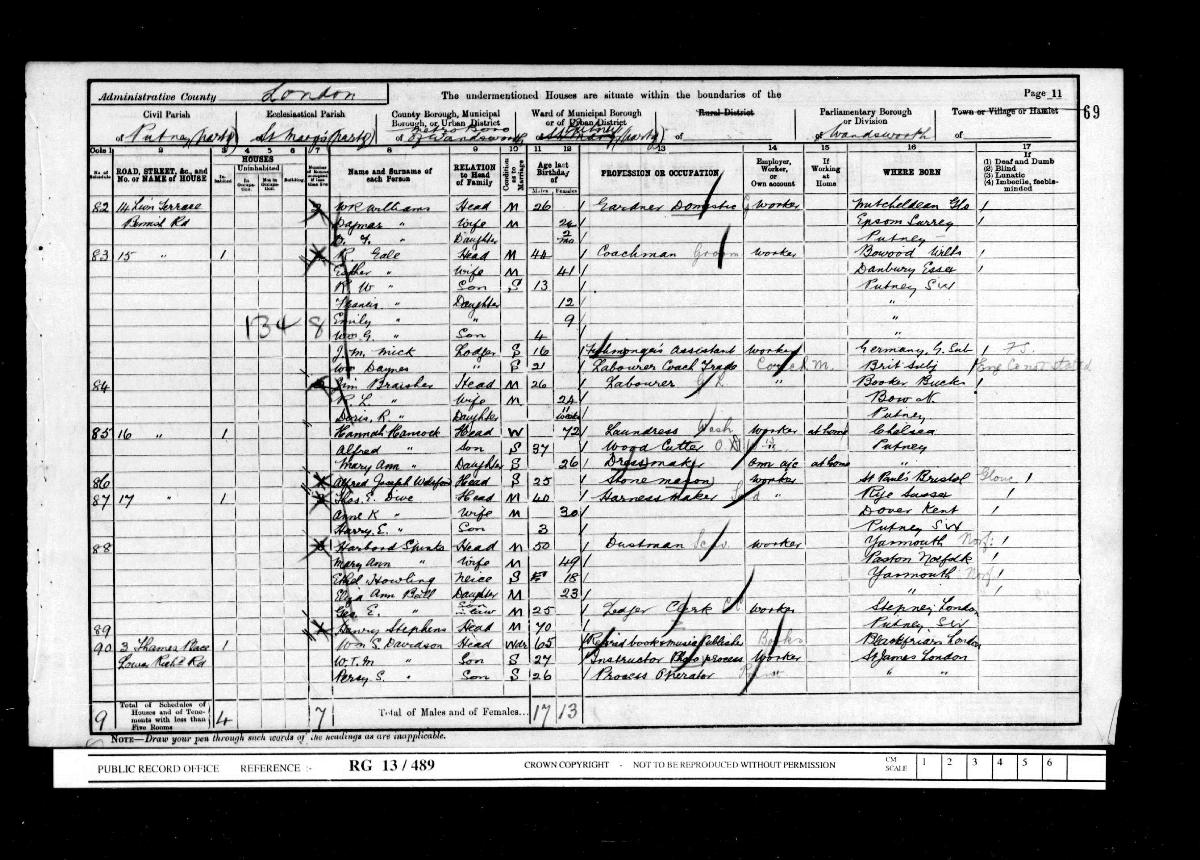 Administrative County London
The undermentioned Houses are situate within the boundaries of the
Page 11
69
Civil Parish
of Putney (part)
Ecclesiastical Parish
St Mary's (part)
County Borough, Municipal Borough, or Urban District
of Metro Boro of Wandsworth
Ward of Municipal Borough or of Urban District
of Putney (part)
Rural District
of
Parliamentary Borough or Division
of Wandsworth
Town or Village or Hamlet
of
Cols 1 2 3 4 5 6 7 8 9 10 11 12 13 14 15 16 17
No. of Schedule
ROAD, STREET, &c., and No. or NAME of HOUSE
HOUSES
Inhabited
Uninhabited
In Occupation
Not in Occupation
Building
Name and Surname of each Person
RELATION to Head of Family
Condition as to Marriage
Age last Birthday of
Males Females
PROFESSION OR OCCUPATION
Employer, Worker, or Own account
If Working at Home
WHERE BORN
If
(1) Deaf and Dumb
(2) Blind
(3) Lunatic
(4) Imbecile, feeble-minded
82 14 Terrace W R Williams Head M 26 Gardner Domestic Worker Mitcheldean Glo
Rd Dagmar " Wife M Epsom Surrey
" Daughter 2 mo Putney
83 15 " 1 R Gale Head M 44 Coachman Groom Worker Bowood Wilts
Esther " Wife M 41 Danbury Essex
R W " Son S 13 Putney SW
Francis " Daughter 12 "
Emily " " 9 "
134 8
Wm G. " Son 4 "
J. M. Mick Lodger S 16 Fishmonger's Assistant Worker Germany, G. Sub F S.
Wm Daynes " S 21 Labourer Coach Trade Coach M. Brit Subj Eng Co not stated
84 Jim Braisher Head M 26 Labourer G L " Booker Bucks
R. L. " Wife M 24 Bow N
Doris R " Daughter 11 weeks Putney
85 16 " 1 Hannah Hancock Head W 72 Laundress Wash Worker at home Chelsea
Alfred " Son S 37 Wood Cutter " Putney
Mary Ann " Daughter S 26 Dressmaker Own a/c at home "
86 Alfred Joseph Head S 25 Stone mason Worker St Paul's Bristol Glouc
87 17 " 1 Thos E. Dive Head M 40 Harness maker " Rye Sussex
Anne K " Wife M 30 Dover Kent
Harry E. " Son 3 Putney SW
88 Harbord Spinks Head M 50 Dustman Scav. Worker Yarmouth Norf:
Mary Ann " Wife M 49 Paston Norfolk
Ethel Howling Neice S 18 Yarmouth Norf
Eliza Ann Daughter M 23 "
Geo E. " Son in law M 25 Ledger Clerk Worker Stepney London
89 Henry Stephens Head M 70 Putney SW
90 3 Thames Place 1 Wm S. Davidson Head Wdr 65 Retired book & music Publisher Blackfriars London
Lower Richd Rd W. T. M " Son S 27 Instructor Photo process Worker St James London
Percy S. " Son S 26 Process Operator " "
9 Total of Schedules of Houses and of Tenements with less than Five Rooms 4 7 Total of Males and of Females... 17 13
NOTE—Draw your pen through such words of the headings as are inapplicable.
PUBLIC RECORD OFFICE REFERENCE :- RG 13 / 489 CROWN COPYRIGHT - NOT TO BE REPRODUCED WITHOUT PERMISSION CM SCALE 1 2 3 4 5 6